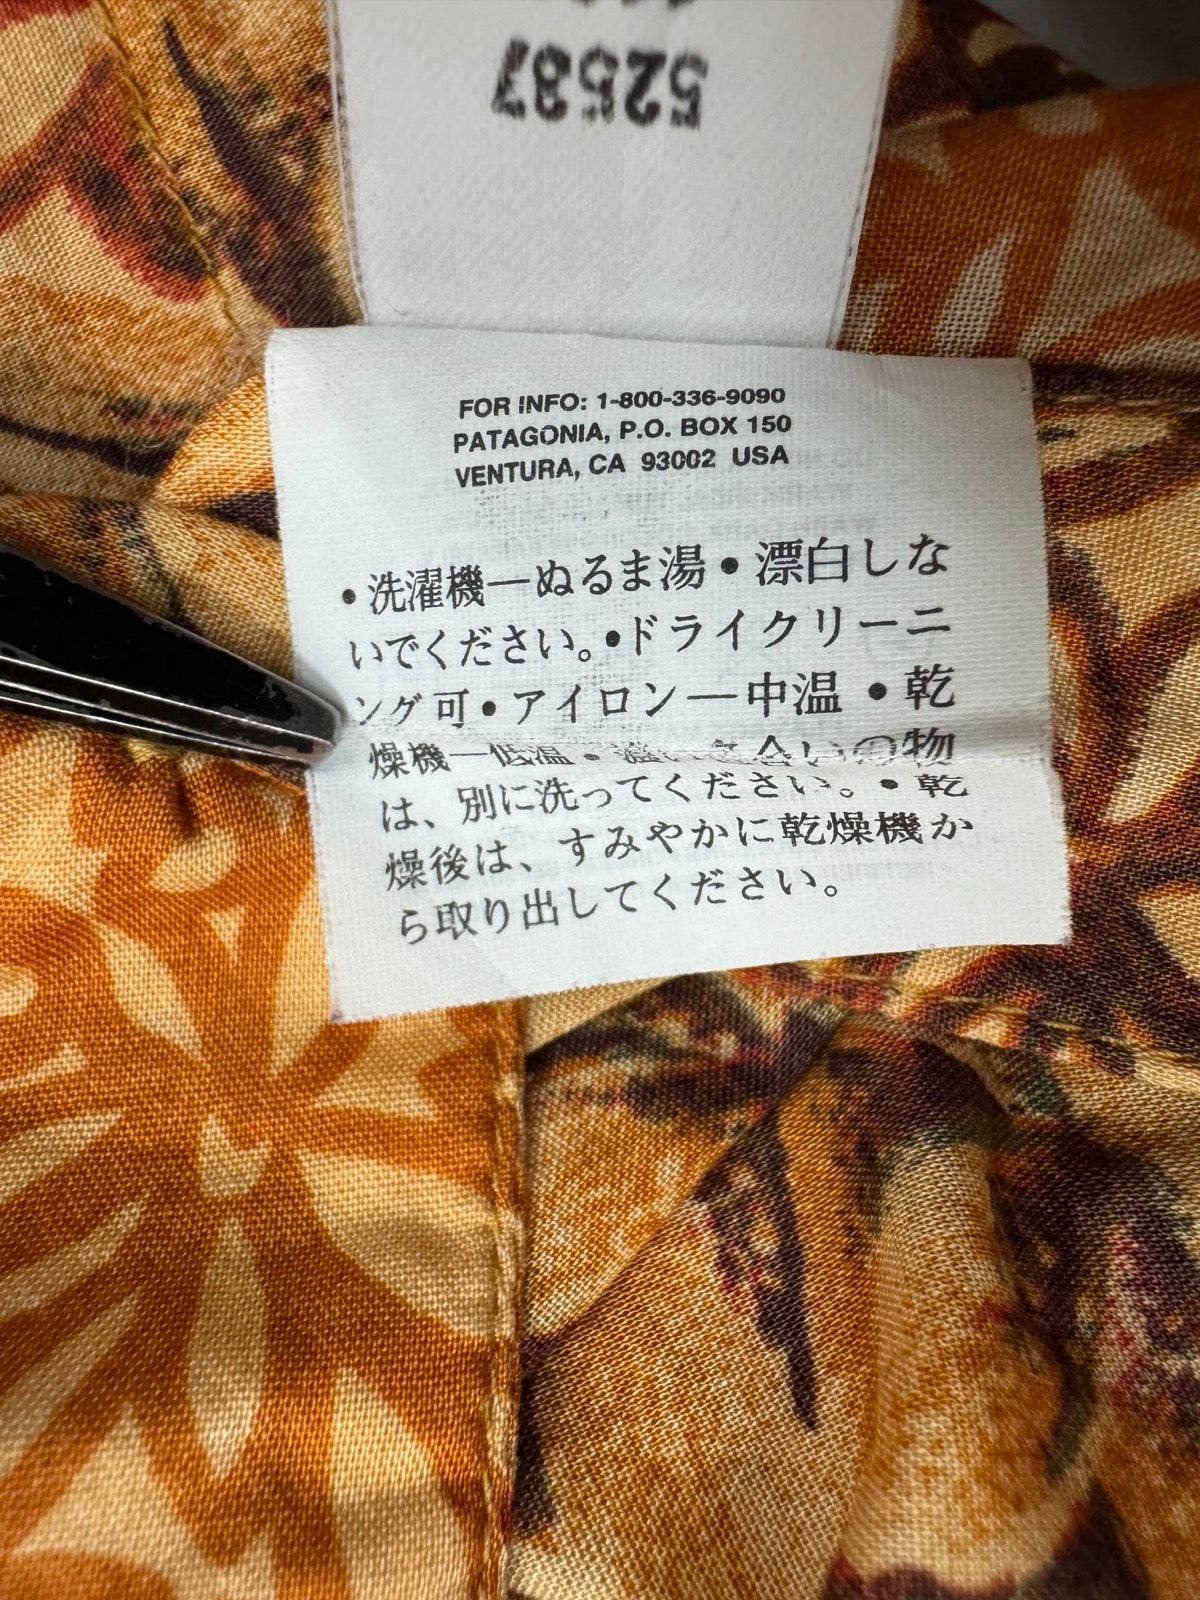 52587
FOR INFO: 1-800-336-9090
PATAGONIA, P.O. BOX 150
VENTURA, CA 93002 USA
•洗濯機—ぬるま湯•漂白しな
いでください。•ドライクリーニ
ング可•アイロン—中温•乾
燥機—低温・濃い色合いの物
は、別に洗ってください。•乾
燥後は、すみやかに乾燥機か
ら取り出してください。